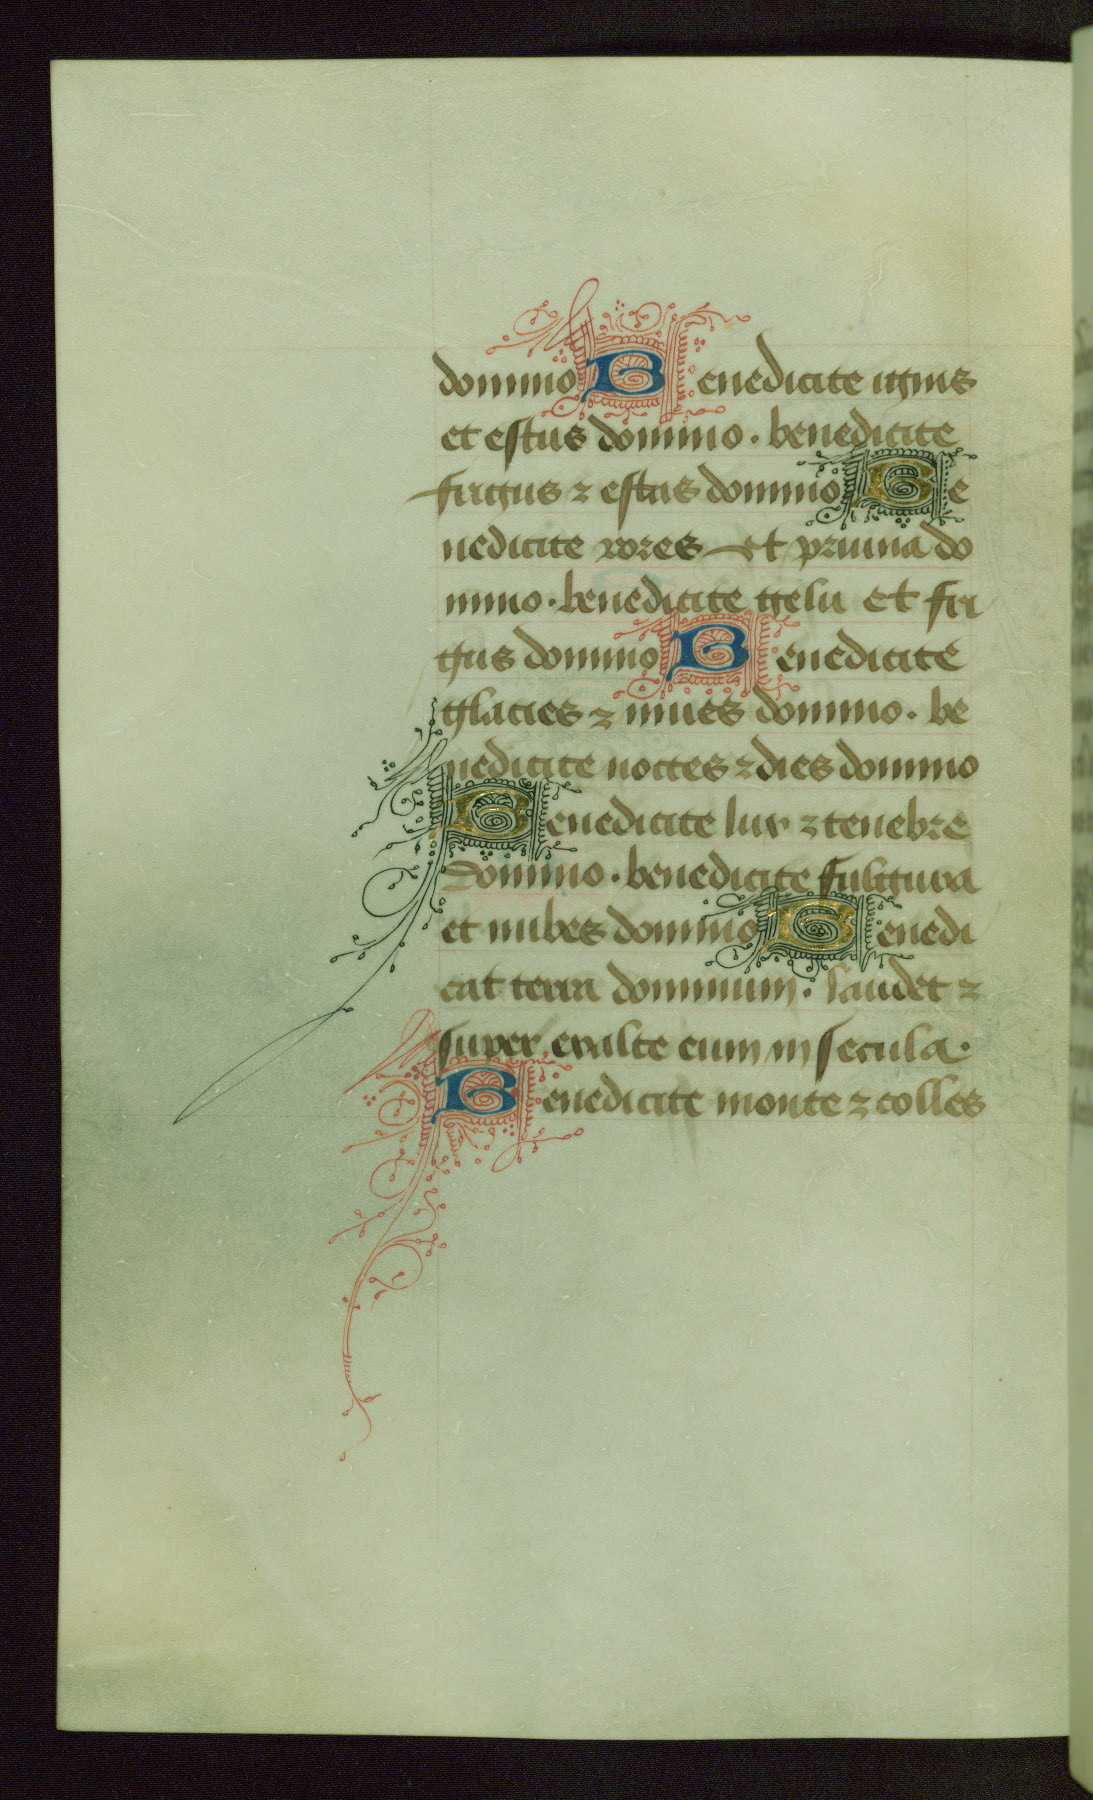 domino Benedicite ignis
et estus domino. benedicite
frigus ⁊ estas domino Be
nedicite rores et pruina do
mino. benedicite gelu et fri
gus domino Benedicite
glacies ⁊ niues domino. be
nedicite noctes ⁊ dies domino
Benedicite lux ⁊ tenebre
domino. benedicite fulgura
et nubes domino Benedi
cat terra dominum. laudet ⁊
super exalte eum in secula.
Benedicite monte ⁊ colles